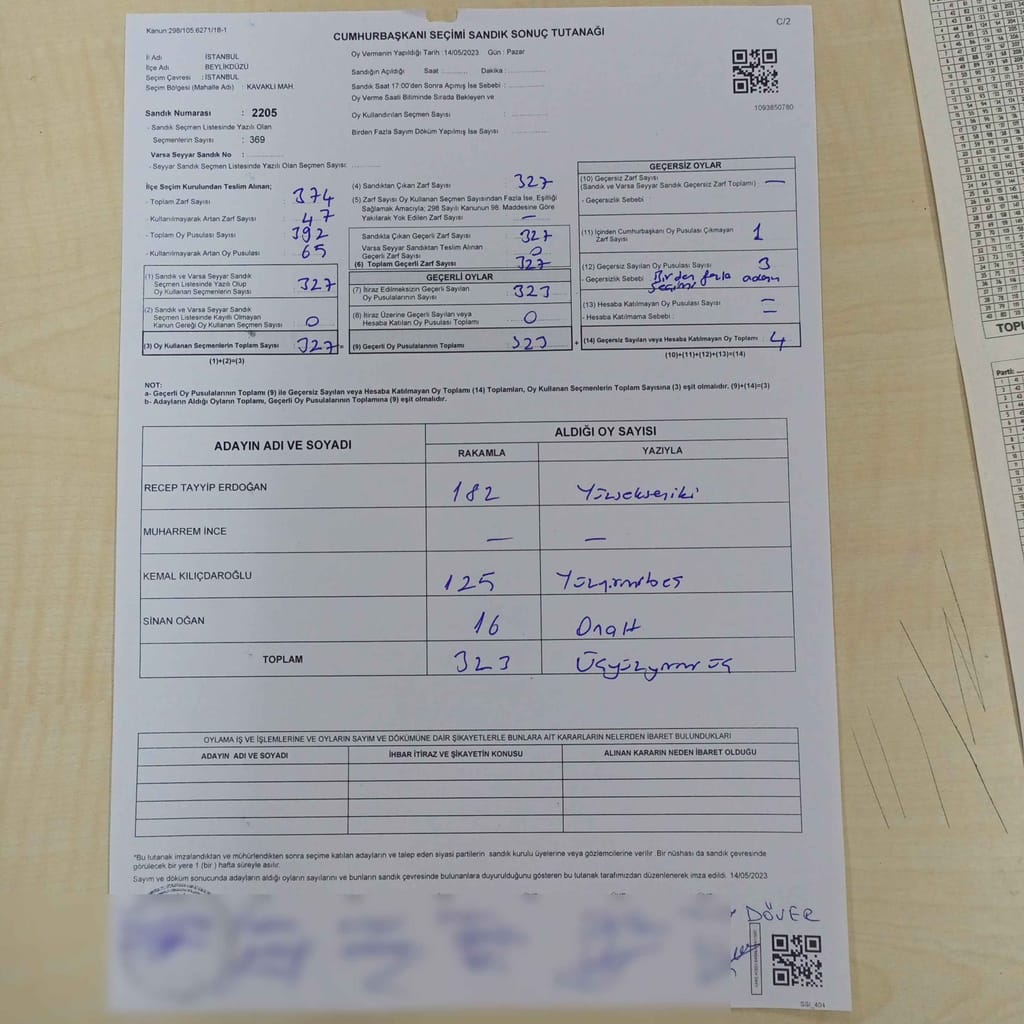 Kanun:298/105.6271/18-1
C/2
CUMHURBAŞKANI SEÇİMİ SANDIK SONUÇ TUTANAĞI
İl Adı : İSTANBUL
İlçe Adı BEYLİKDÜZÜ
Seçim Çevresi : İSTANBUL
Seçim Bölgesi (Mahalle Adı) : KAVAKLI MAH.
Sandık Numarası : 2205
- Sandık Seçmen Listesinde Yazılı Olan
Seçmenlerin Sayısı : 369
Varsa Seyyar Sandık No :
- Seyyar Sandık Seçmen Listesinde Yazılı Olan Seçmen Sayısı:
Oy Vermenin Yapıldığı Tarih :14/05/2023 Gün : Pazar
Sandığın Açıldığı Saat : Dakika :
Sandık Saat 17:00'den Sonra Açımış İse Sebebi :
Oy Verme Saati Bitiminde Sırada Bekleyen ve
Oy Kullandırılan Seçmen Sayısı :
Birden Fazla Sayım Döküm Yapılmış İse Sayısı :
1093850780
İlçe Seçim Kurulundan Teslim Alınan;
- Toplam Zarf Sayısı : 374
- Kullanılmayarak Artan Zarf Sayısı : 47
- Toplam Oy Pusulası Sayısı : 392
- Kullanılmayarak Artan Oy Pusulası : 65
(1) Sandık ve Varsa Seyyar Sandık
Seçmen Listesinde Yazılı Olup
Oy Kullanan Seçmenlerin Sayısı : 327
(2) Sandık ve Varsa Seyyar Sandık
Seçmen Listesinde Kayıtlı Olmayan
Kanun Gereği Oy Kullanan Seçmen Sayısı : 0
(3) Oy Kullanan Seçmenlerin Toplam Sayısı : 327 =
(1)+(2)=(3)
(4) Sandıktan Çıkan Zarf Sayısı : 327
(5) Zarf Sayısı Oy Kullanan Seçmen Sayısından Fazla İse, Eşitliği
Sağlamak Amacıyla; 298 Sayılı Kanunun 98. Maddesine Göre
Yakılarak Yok Edilen Zarf Sayısı : —
Sandıkta Çıkan Geçerli Zarf Sayısı : 327
Varsa Seyyar Sandıktan Teslim Alınan
Geçerli Zarf Sayısı : 0
(6) Toplam Geçerli Zarf Sayısı : 327
GEÇERLİ OYLAR
(7) İtiraz Edilmeksizin Geçerli Sayılan
Oy Pusulalarının Sayısı : 323
(8) İtiraz Üzerine Geçerli Sayılan veya
Hesaba Katılan Oy Pusulası Toplamı : 0
(9) Geçerli Oy Pusulalarının Toplamı : 323 +
GEÇERSİZ OYLAR
(10) Geçersiz Zarf Sayısı
(Sandık ve Varsa Seyyar Sandık Geçersiz Zarf Toplamı) : —
- Geçersizlik Sebebi :
(11) İçinden Cumhurbaşkanı Oy Pusulası Çıkmayan
Zarf Sayısı : 1
(12) Geçersiz Sayılan Oy Pusulası Sayısı : 3
- Geçersizlik Sebebi : Birden fazla adayın
seçimi
(13) Hesaba Katılmayan Oy Pusulası Sayısı : —
- Hesaba Katılmama Sebebi : —
(14) Geçersiz Sayılan veya Hesaba Katılmayan Oy Toplamı : 4
(10)+(11)+(12)+(13)=(14)
NOT:
a- Geçerli Oy Pusulalarının Toplamı (9) ile Geçersiz Sayılan veya Hesaba Katılmayan Oy Toplamı (14) Toplamları, Oy Kullanan Seçmenlerin Toplam Sayısına (3) eşit olmalıdır. (9)+(14)=(3)
b- Adayların Aldığı Oyların Toplamı, Geçerli Oy Pusulalarının Toplamına (9) eşit olmalıdır.
ADAYIN ADI VE SOYADI ALDIĞI OY SAYISI
RAKAMLA YAZIYLA
RECEP TAYYİP ERDOĞAN 182 Yüzsekseniki
MUHARREM İNCE — —
KEMAL KILIÇDAROĞLU 125 Yüzyirmibeş
SİNAN OĞAN 16 Onaltı
TOPLAM 323 Üçyüzyirmi üç
OYLAMA İŞ VE İŞLEMLERİNE VE OYLARIN SAYIM VE DÖKÜMÜNE DAİR ŞİKAYETLERLE BUNLARA AİT KARARLARIN NELERDEN İBARET BULUNDUKLARI
ADAYIN ADI VE SOYADI İHBAR İTİRAZ VE ŞİKAYETİN KONUSU ALINAN KARARIN NEDEN İBARET OLDUĞU
*Bu tutanak imzalandıktan ve mühürlendikten sonra seçime katılan adayların ve talep eden siyasi partilerin sandık kurulu üyelerine veya gözlemcilerine verilir. Bir nüshası da sandık çevresinde
görülecek bir yere 1 (bir ) hafta süreyle asılır.
Sayım ve döküm sonucunda adayların aldığı oyların sayılarını ve bunların sandık çevresinde bulunanlara duyurulduğunu gösteren bu tutanak tarafımızdan düzenlenerek imza edildi. 14/05/2023
DÖVER
Parti: